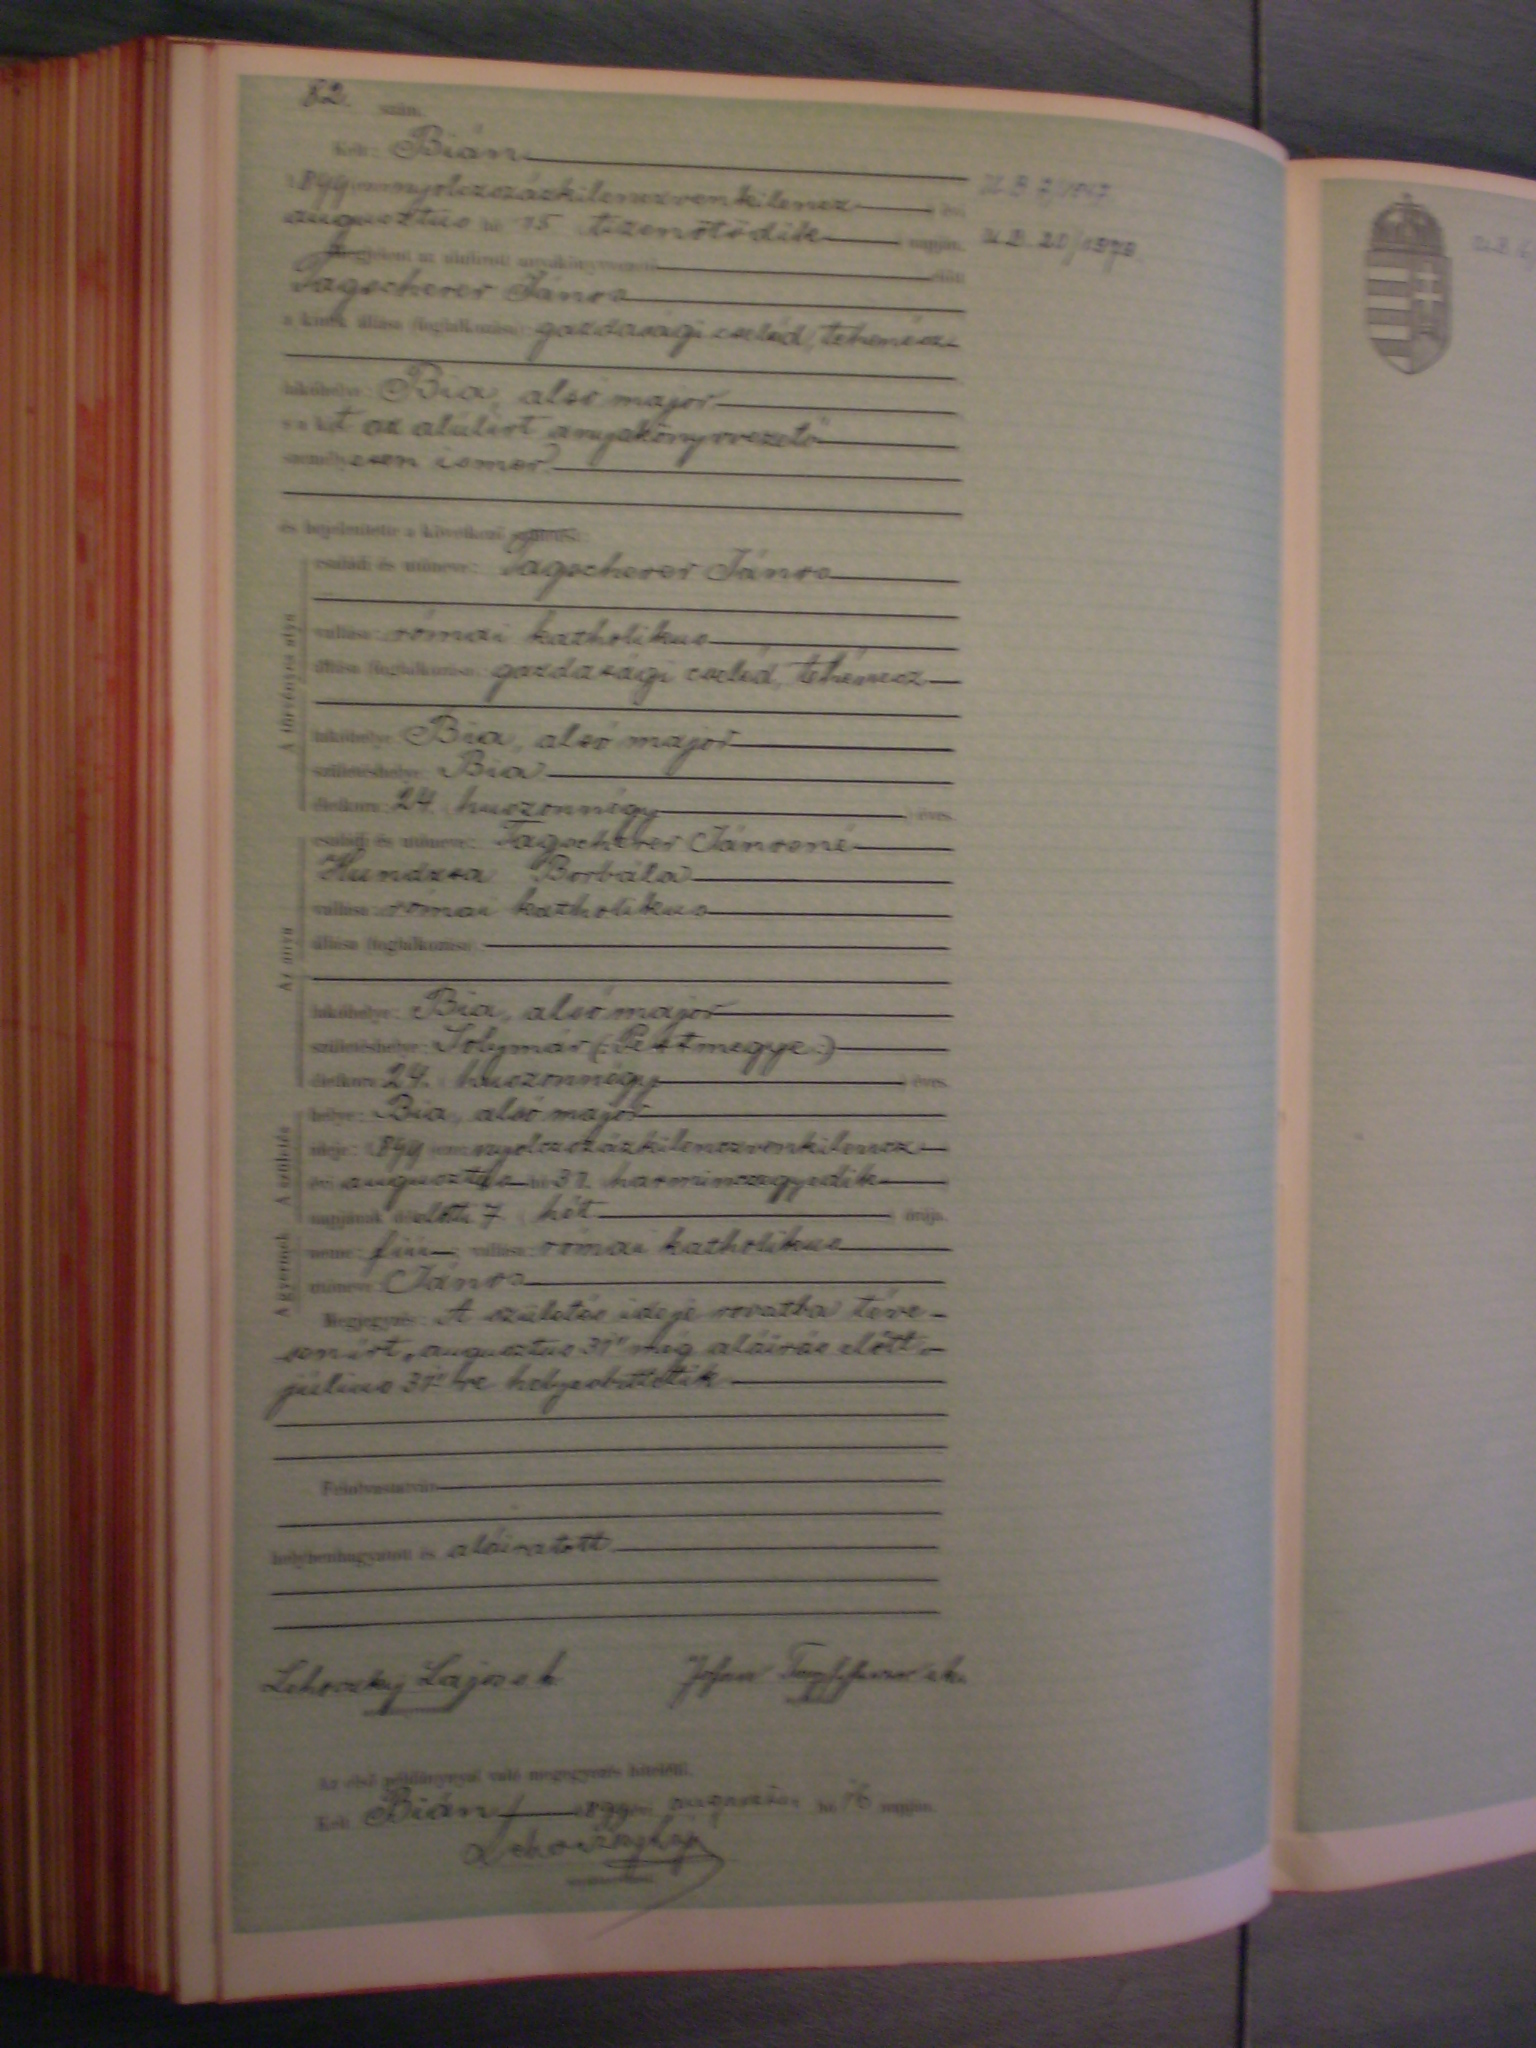 82. szám.
Kelt: Bián
1899 ezernyolczszázkilenczvenkilencz évi
augusztus hó 15 tizenötödik napján,
U. B. 20/1970.
Megjelent az alulírott anyakönyvvezető előtt
Tagscherer János
a kinek állása (foglalkozása): gazdasági cseléd, tehenész
lakóhelye: Bia, alsó major
a kit az alúlirt anyakönyvvezető
személyesen ismer
és bejelentette a következő születést:
A törvényes atya
családi és utóneve: Tagscherer János
vallása: római katholikus
állása (foglalkozása): gazdasági cseléd, tehenész
lakóhelye: Bia, alsó major
születéshelye: Bia
életkora: 24. huszonnégy éves.
Az anya
családi és utóneve: Tagscherer Jánosné
Hundzsa Borbála
vallása: római katholikus
állása (foglalkozása):
lakóhelye: Bia, alsó major
születéshelye: Solymár (: Pestmegye :)
életkora: 24. huszonnégy éves.
A születés
helye: Bia, alsó major
ideje: 1899 ezernyolczszázkilenczvenkilencz
évi augusztus hó 31. harminczegyedik
napjának d. előtti 7 hét órája.
A gyermek
neme: fiú vallása: római katholikus
utóneve: János
Megjegyzés: A születés ideje rovatba téve-
sen irt „augusztus 31" még aláirás előtt
július 31" re helyesbittetik
Felolvastatván
helybenhagyatott és aláiratott
Lehoczky Lajos s. k.
Johan
Az első példánynyal való megegyezés hiteléül.
Kelt Bián 1899 évi augusztus hó 16 napján.
Lehoczky Lajos